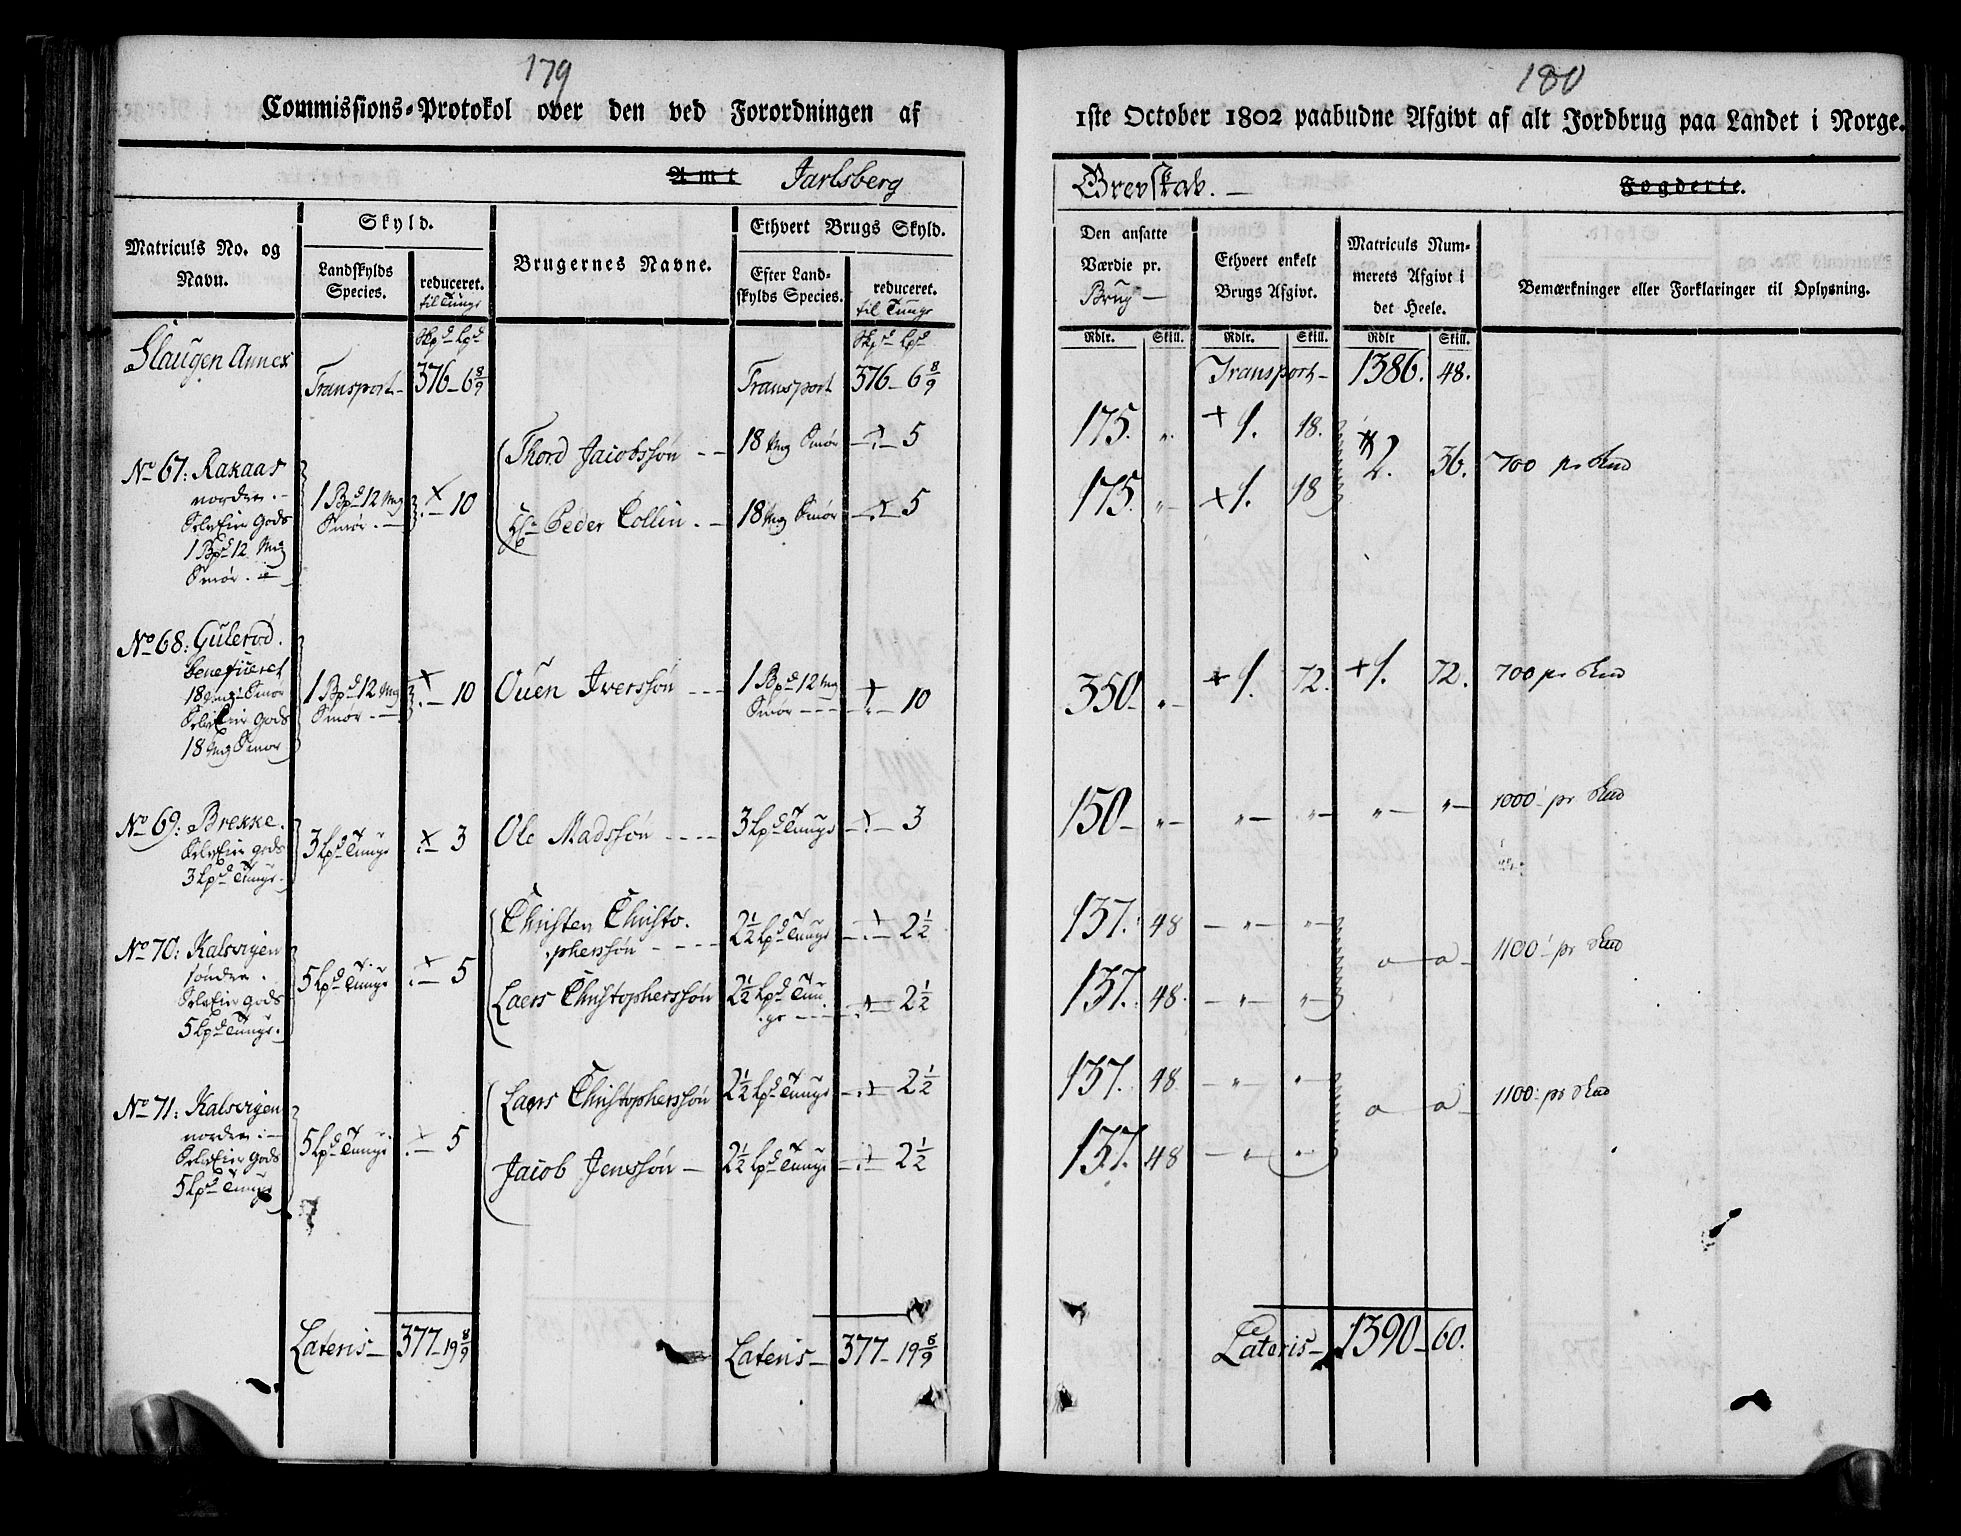 179
Commissions-Protokol over den ved Forordningen af
Amt Jarlsberg
Matriculs No. og
Navn.
Skyld.
Landskylds
Species.
reduceret.
til Tunge
Brugernes Navne.
Ethvert Brugs Skyld.
Efter Land-
skylds Species.
reduceret.
til Tunge
Skpd Lpd
Skpd Lpd
Slaugen Annex
Transport - 376 - 6 8/9
Transport 376 - 6 8/9
No 67: Rakaas
nordre. -
SelvEier Gods
1 Bpd 12 Mg
Smør. -
1 Bpd 12 Mg
Smør. -
10
Thord Jacobssøn - - 18 Mg Smør 5
Hr Peder Collin. - 18 Mg Smør 5
No 68: Gulerød.
beneficeret
18 Mg: Smør
SelvEier Gods
18 Mg Smør
1 Bpd 12 Mg
Smør. -
10
Ouen Iverssøn - - -
1 Bpd 12 Mg
Smør - - -
10
No 69: Brekke.
SelvEier gods
3 Lpd Tunge.
3 Lpd Tunge 3
Ole Madssøn - - - - 3 Lpd Tunge 3
No 70: Kalsvigen
søndre.
SelvEier Gods
5 Lpd Tunge.
5 Lpd Tunge 5
Christen Christo-
phersøn - - - -
2 1/2 Lpd Tunge 2 1/2
Laers Christopherssøn
2 1/2 Lpd Tun-
ge - - -
2 1/2
No 71: Kalsvigen
nordre: -
SelvEier Gods
5 Lpd Tunge
5 Lpd Tunge 5
Laers Christopherssøn 2 1/2 Lpd Tunge 2 1/2
Jacob Jenssøn - 2 1/2 Lpd Tunge 2 1/2
Lateris - 377 - 19 8/9
Lateris - 377 - 19 8/9
180
1ste October 1802 paabudne Afgivt af alt Jordbrug paa Landet i Norge.
Grevskab. - Fogderie.
Den ansatte
Værdie pr.
Brug -
Ethvert enkelt
Brugs Afgivt.
Matriculs Num-
merets Afgivt i
det Heele.
Bemærkninger eller Forklaringer til Oplysning.
Rdlr. Skill. Rdlr. Skill. Rdlr Skill.
Transport - 1386. 48.
175. " + 1. 18.
2. 36. 700 pr Skud
175. " + 1. 18
350 - " - + 1. 72. + 1. 72. 700 pr Skud
150 - " - " - " - " - " - 1000 pr Skud
137. 48 - " - " -
1100 pr Skud
137. 48. - " - " -
137. 48 - " - " -
1100 pr Skud
137. 48 - " - " -
Lateris - 1390 - 60.